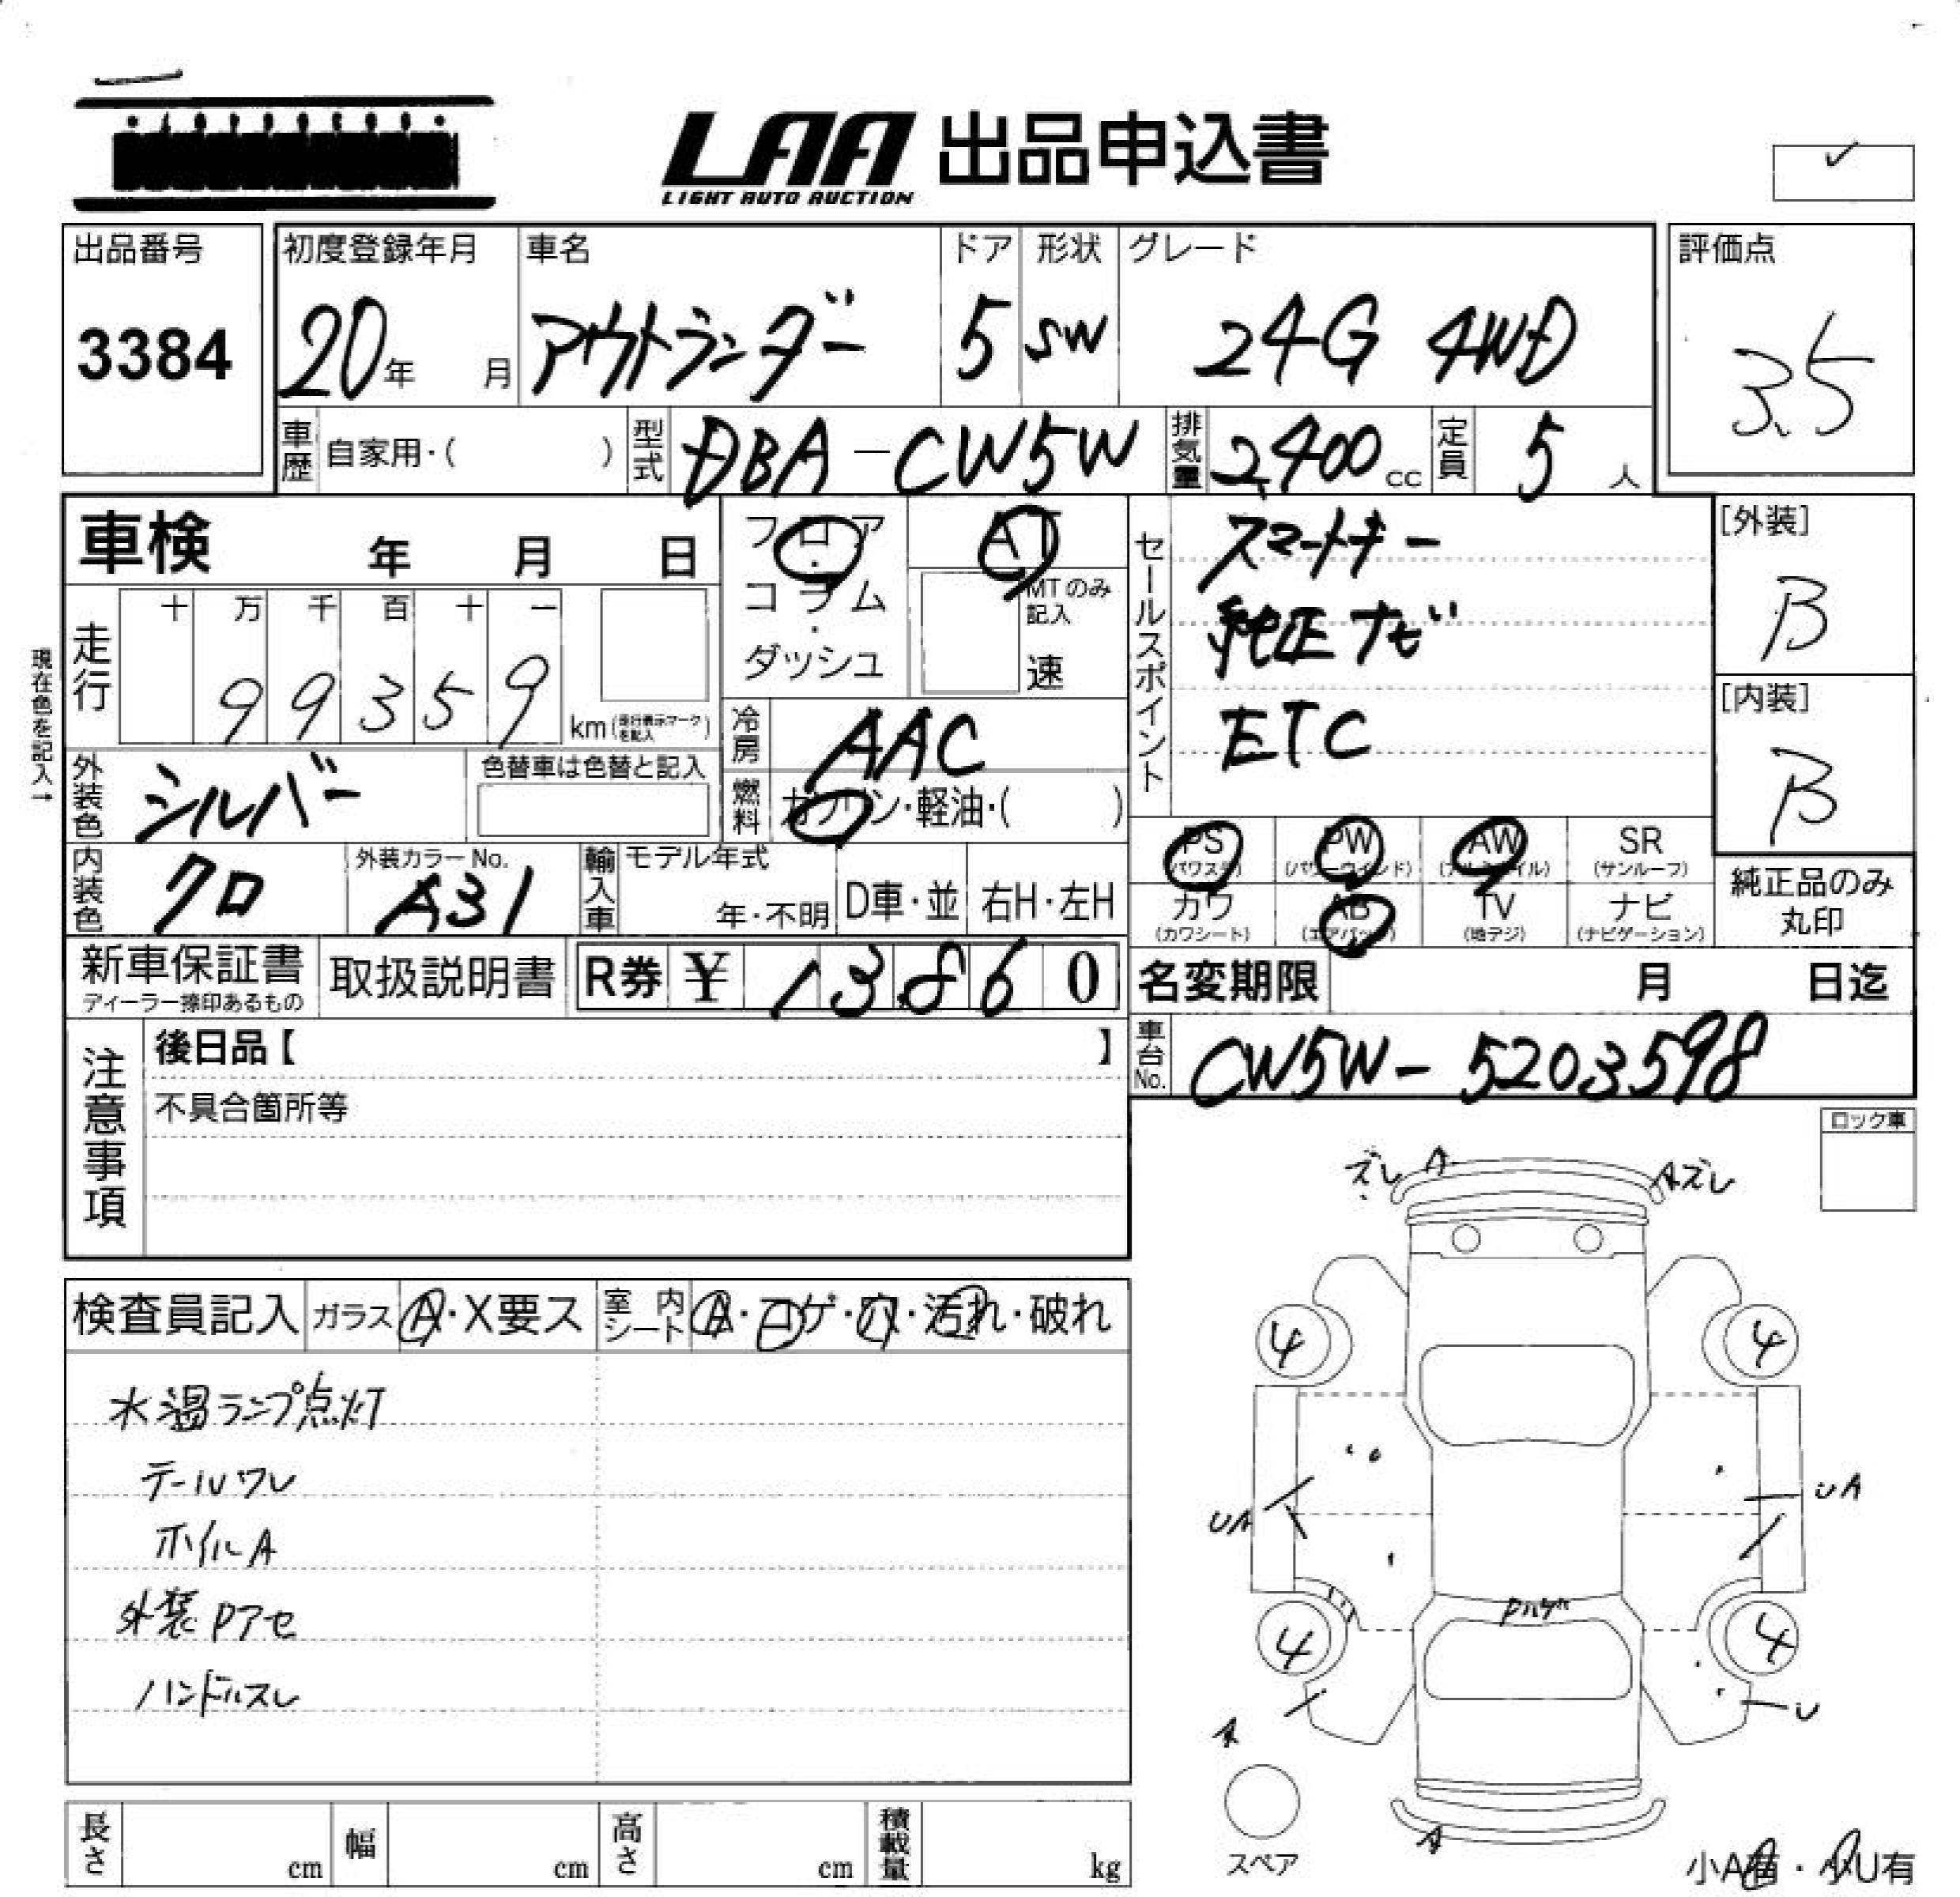 LAA 出品申込書
LIGHT AUTO AUCTION
出品番号
3384
初度登録年月
20年 月
車名
アウトランダー
ドア
5
形状
SW
グレード
24G 4WD
評価点
3.5
車歴 自家用・( )
型式 DBA-CW5W
排気量 2,400 cc
定員 5 人
車検 年 月 日
フロア
・
コラム
・
ダッシュ
AT
MTのみ
記入
速
セールスポイント
スマートキー
純正ナビ
ETC
[外装]
B
[内装]
B
現在色を記入→
走行
十 万 千 百 十 一
9 9 3 5 9
km(走行表示マークを記入)
冷房 AAC
燃料 ガソリン・軽油・( )
外装色 シルバー
色替車は色替と記入
内装色 クロ
外装カラーNo.
A31
輸入車
モデル年式
年・不明
D車・並
右H・左H
PS
(パワステ)
PW
(パワーウインド)
AW
(アルミホイル)
SR
(サンルーフ)
カワ
(カワシート)
AB
(エアバッグ)
TV
(地デジ)
ナビ
(ナビゲーション)
純正品のみ
丸印
新車保証書
ディーラー捺印あるもの
取扱説明書
R券 ¥ 13,860
名変期限 月 日迄
車台No. CW5W-5203598
注意事項
後日品【 】
不具合箇所等
ロック車
ズレ A
Aズレ
検査員記入
ガラス A・X要ス
室内シート A・コゲ・穴・汚れ・破れ
水温ランプ点灯
テールワレ
ホイルA
外装Pアセ
ハンドルスレ
4
4
UA
UA
Pハゲ
4
4
A
U
スペア
A
長さ cm
幅 cm
高さ cm
積載量 kg
小A有・小U有